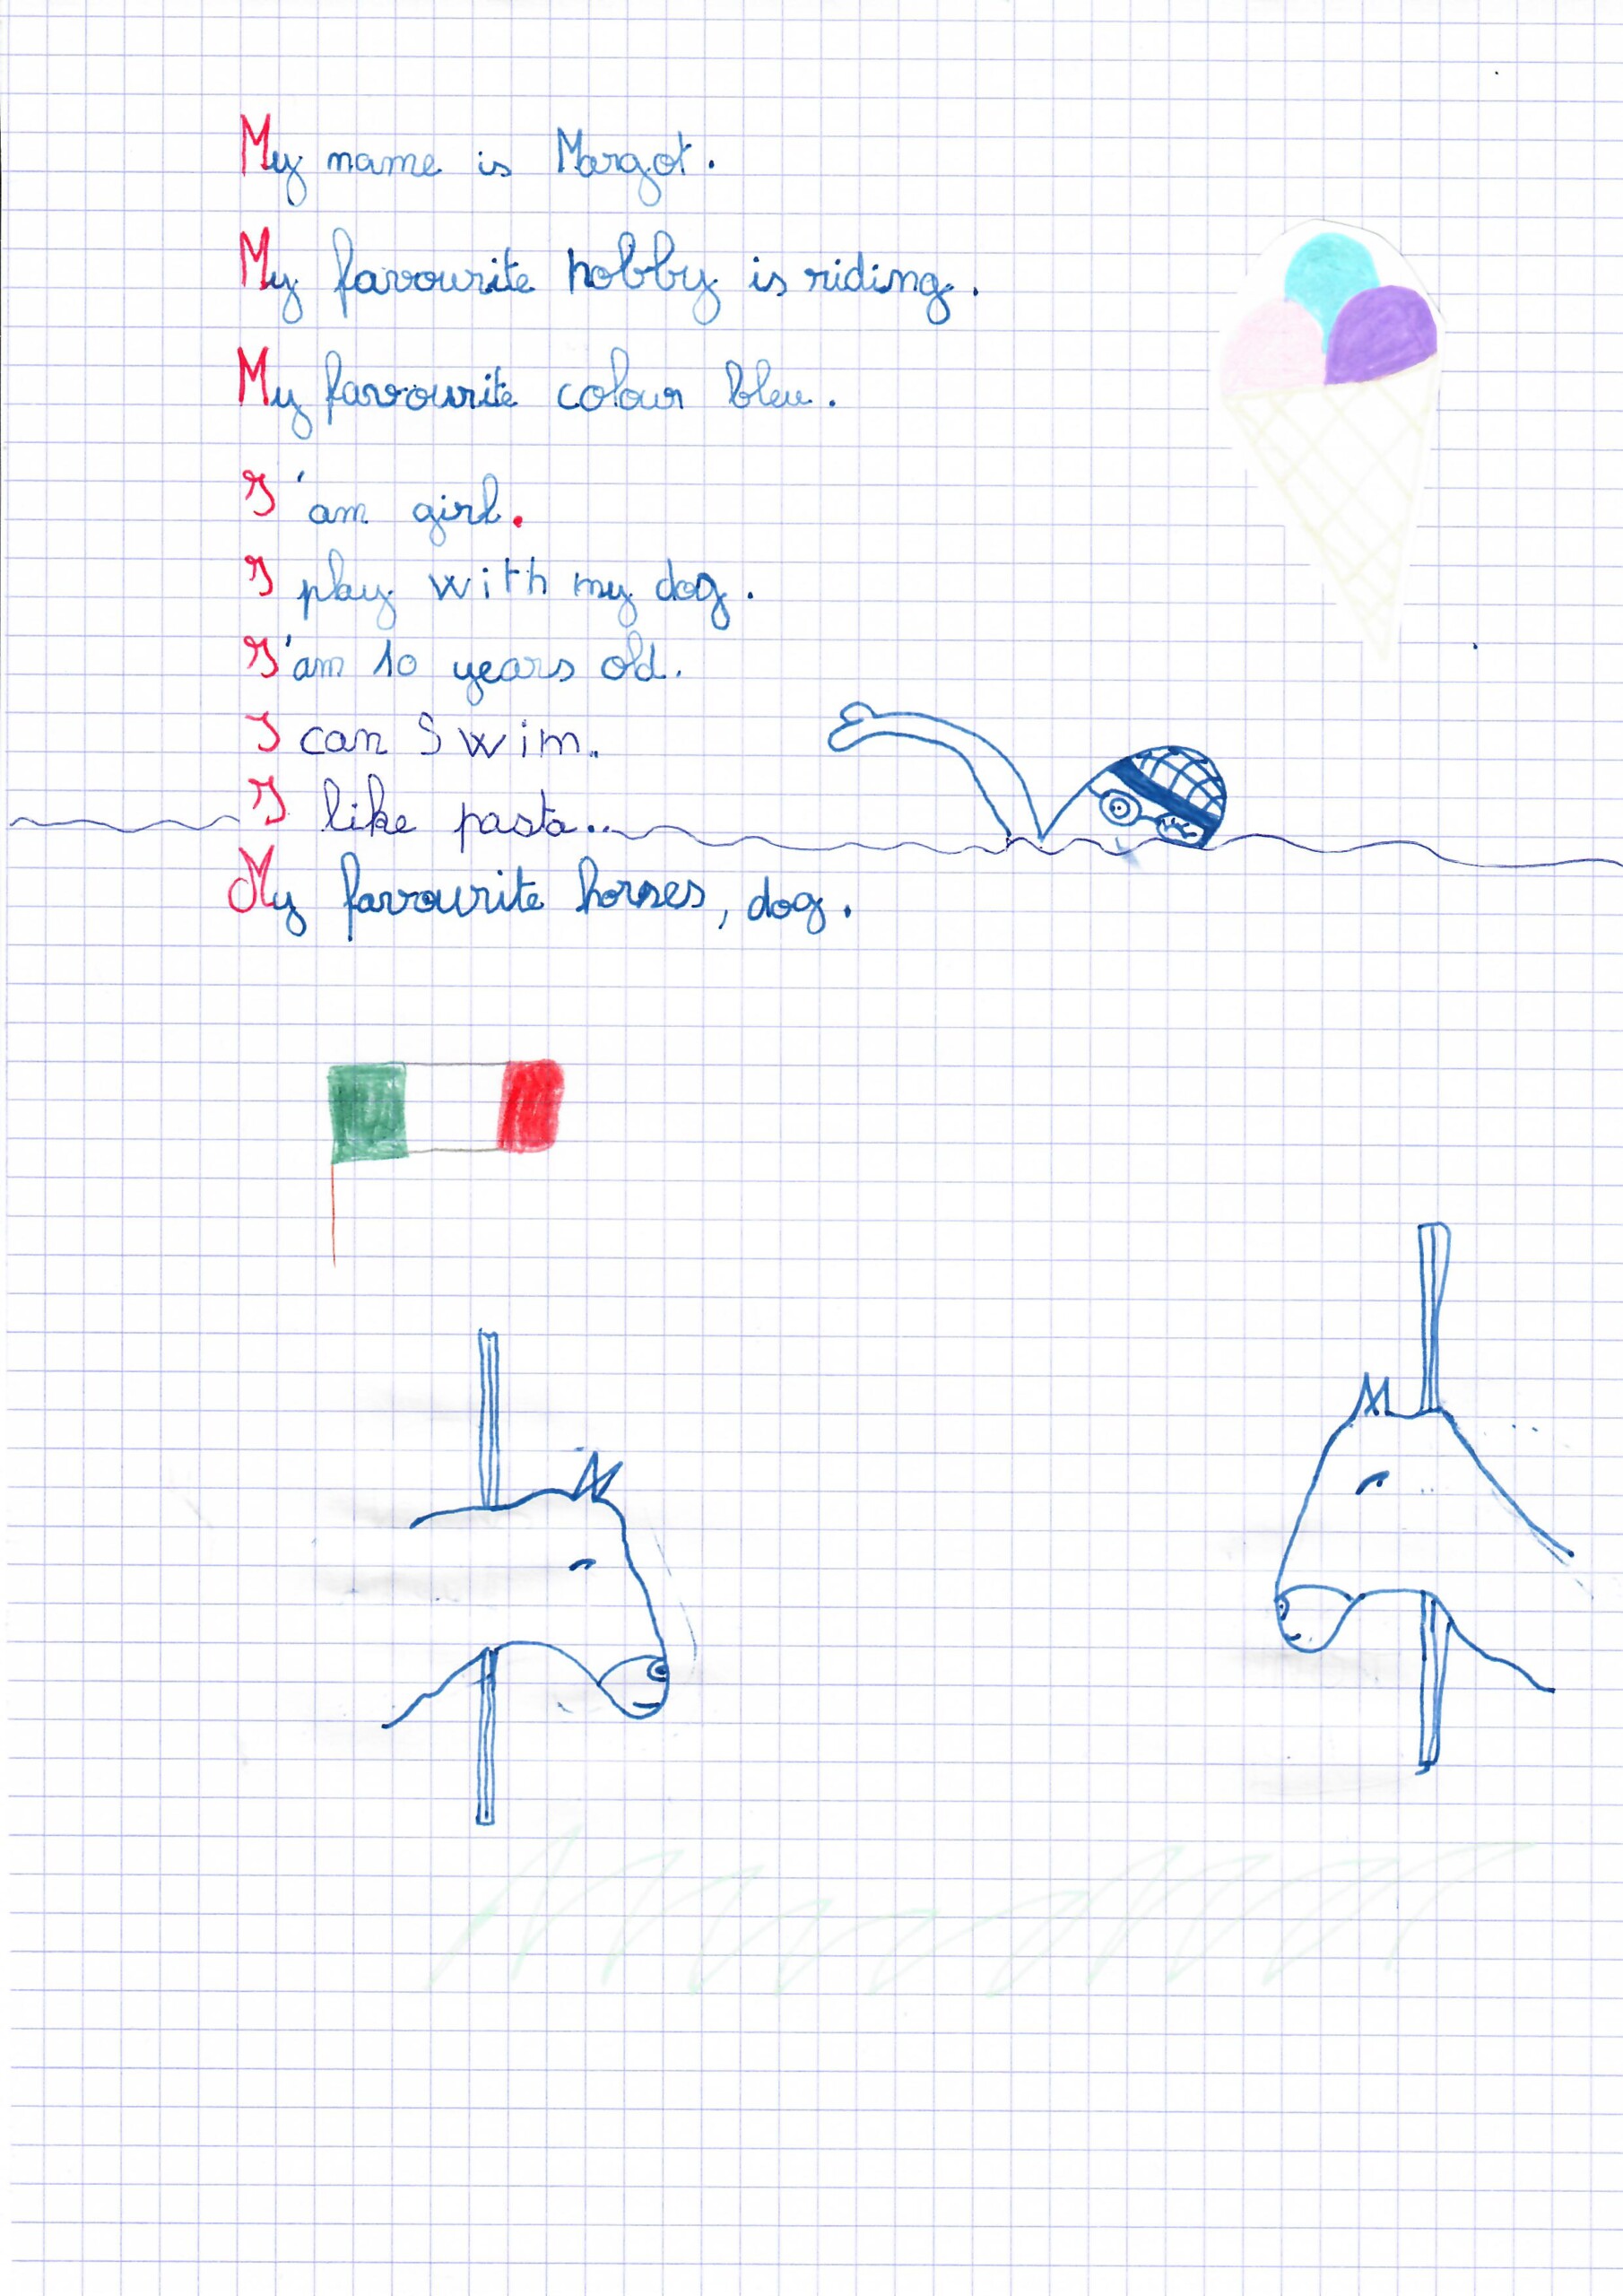 My name is Margot.
My favourite hobby is riding.
My favourite colour bleu.
I'am girl.
I play with my dog.
I'am 10 years old.
I can Swim.
I like pasta..
My favourite horses, dog.